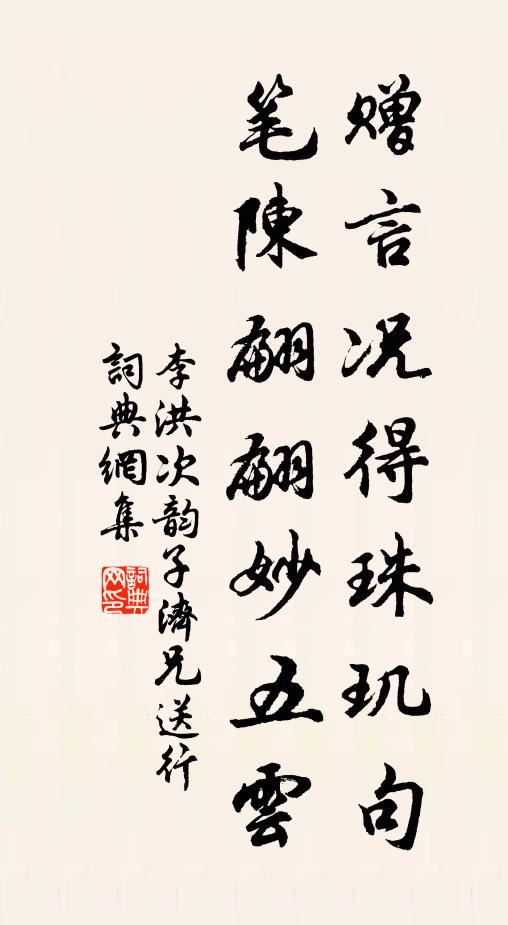 赠言况得珠玑句
笔陳翩翩妙五雲
李洪次韵子濟兄送行
詞典網集
詞典网印